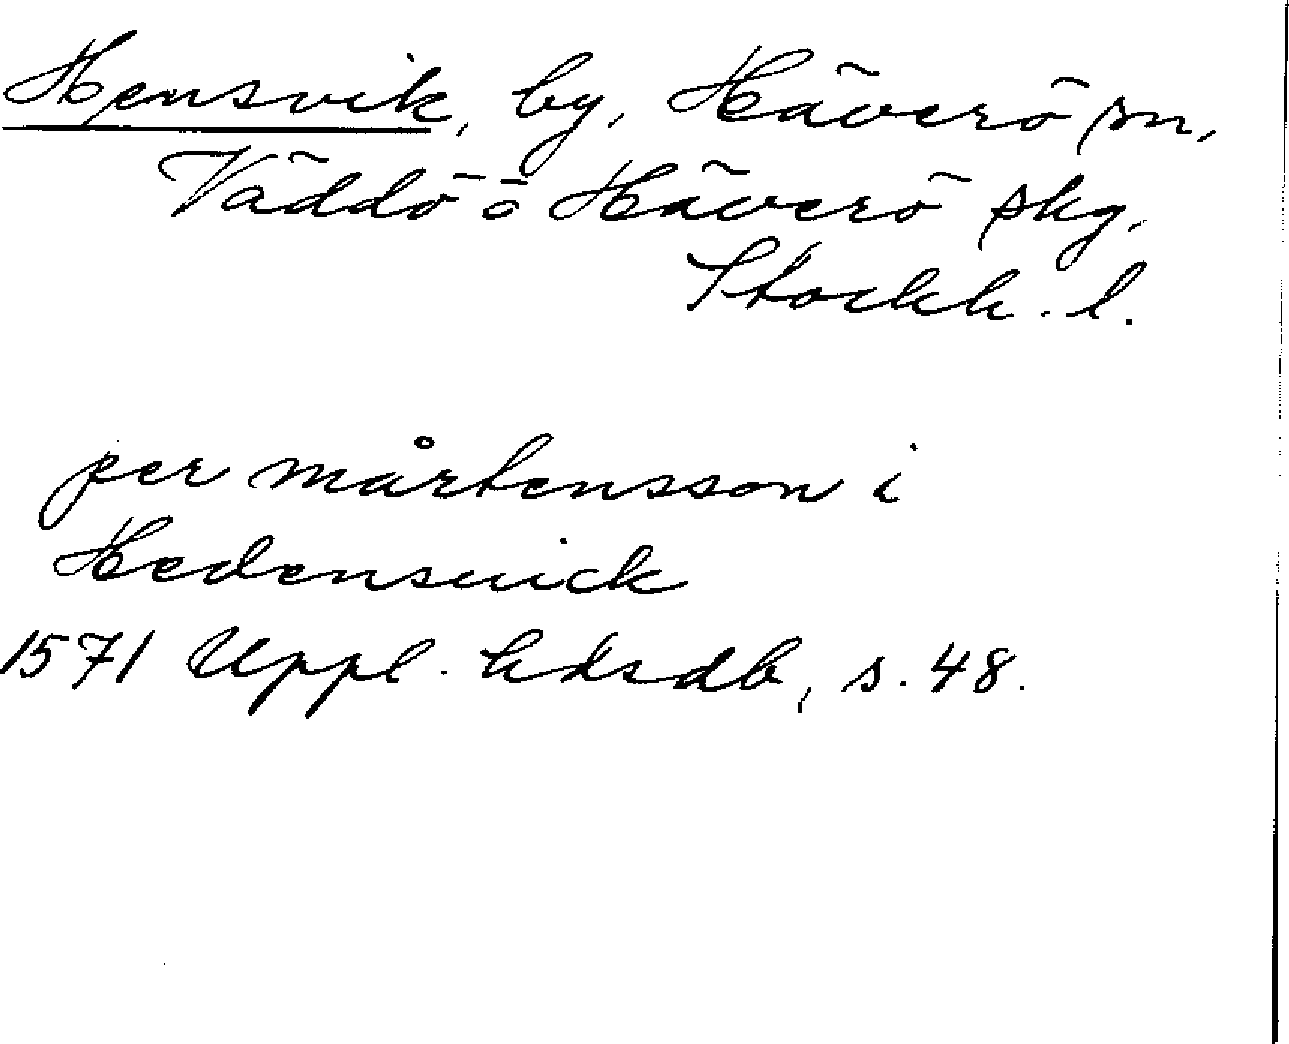 Hensvik, by, Häverö sn,
Väddö o Häverö skg.
Stockh. l.
per mårtensson i
Hedensuick
1571 Uppl. hdsdb, s. 48.